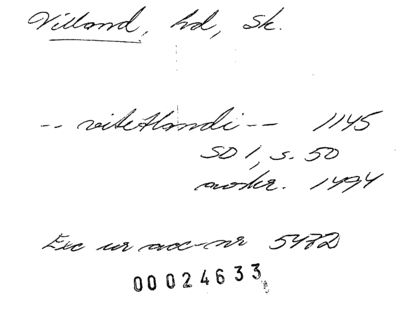 Villand, hd, Sk.
-- vitetlandi -- 1145
SD 1, s. 50
avskr. 1494
Exc ur acc-nr 5472
00024633